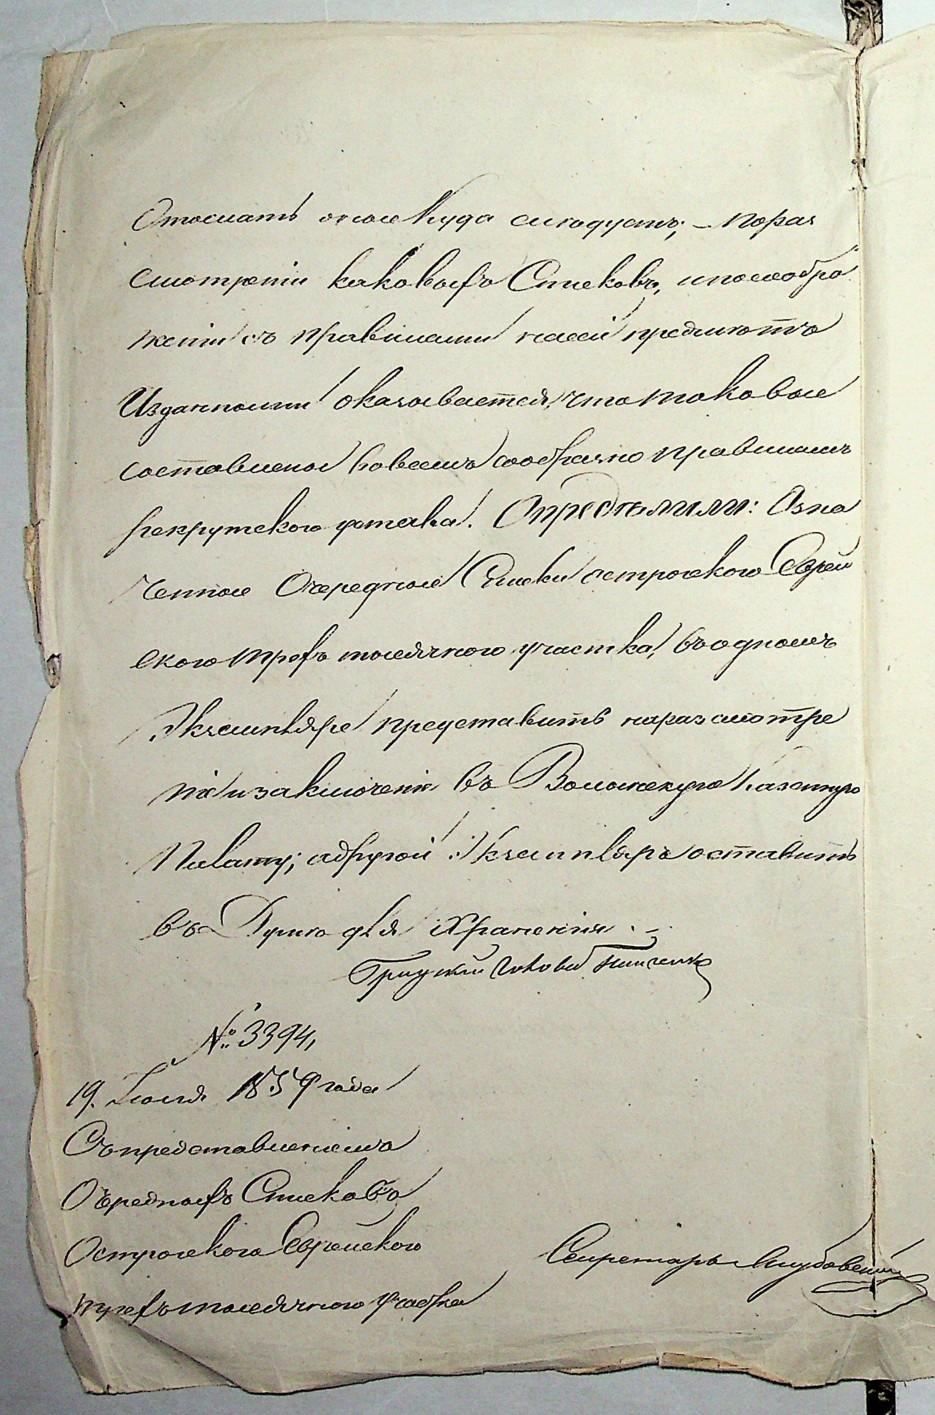 Отослать оные куда слѣдуетъ; – По раз
смотреніи каковыхъ Списковъ, и по сообра
женіи съ правилами на сей предметъ
Изданными оказывается, что таковые
составлены во всемъ сообразно правиламъ
рекрутского устава. Опредѣлили: Озна
ченные Очередные Списки острогского Еврей
ского трехъ тысячного участка, въ одномъ
Экземпляре представить на разсмотре
ніе и заключеніе въ Волынскую Казенную
Палату; а другой Экземпляръ оставить
въ Думѣ для Храненія. –
№ 3394,
19. Іюля 1859 года
Съ представленіемъ
Очередныхъ Списковъ
Острогского Еврейского
трехъ тысячного Участка
Секретарь